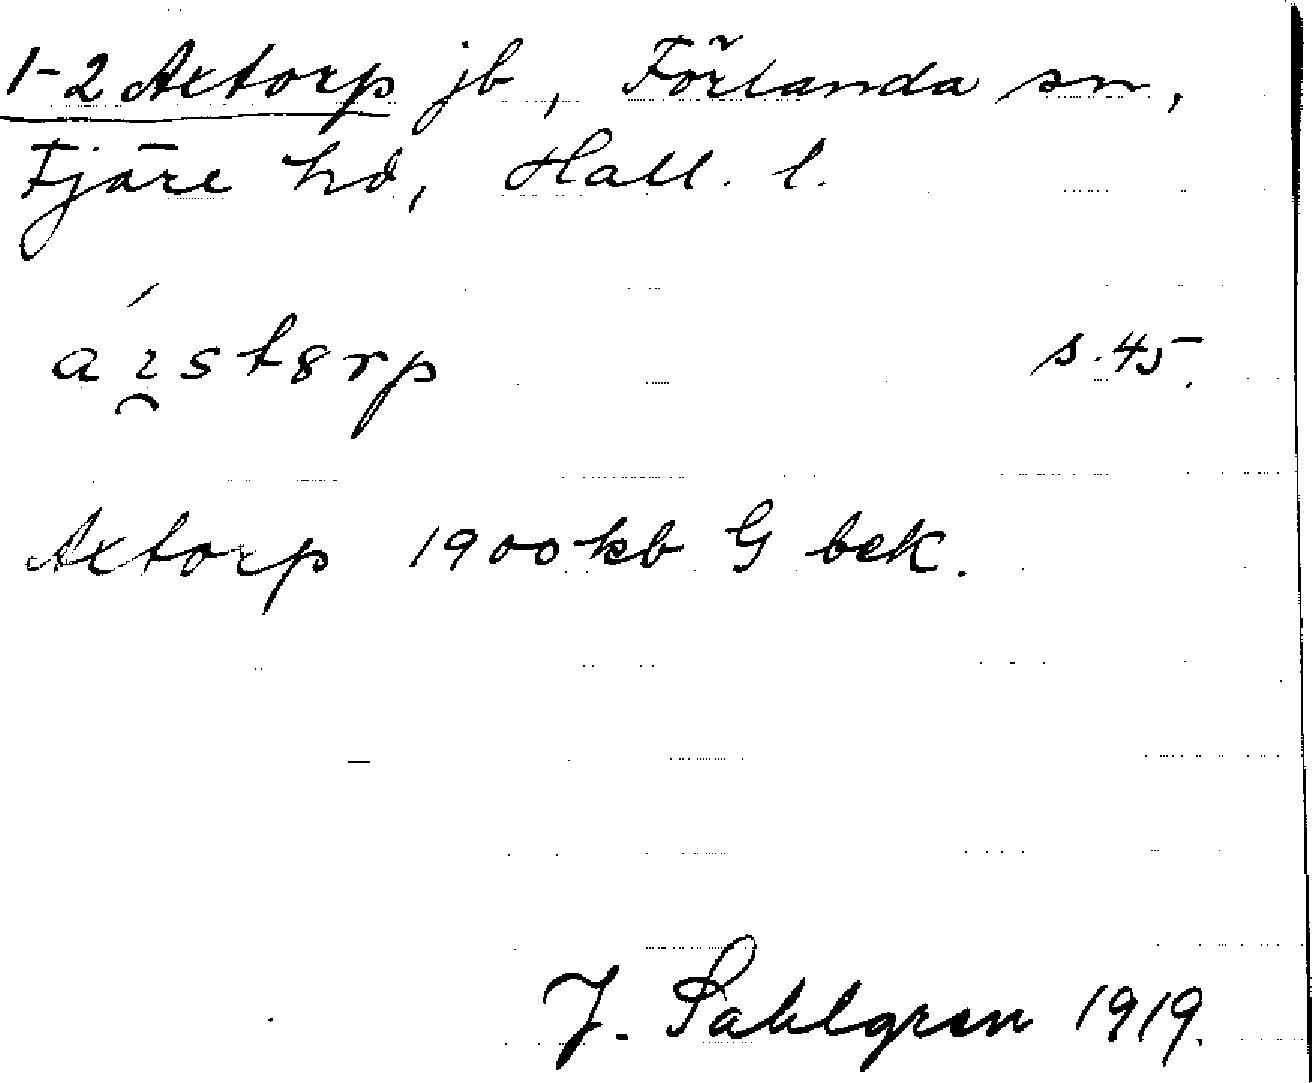 1-2 Axtorp jb, Förlanda sn,
Fjäre hd, Hall. l.
s.45.
Axtorp 1900 kb G bek.
J. Sahlgren 1919.